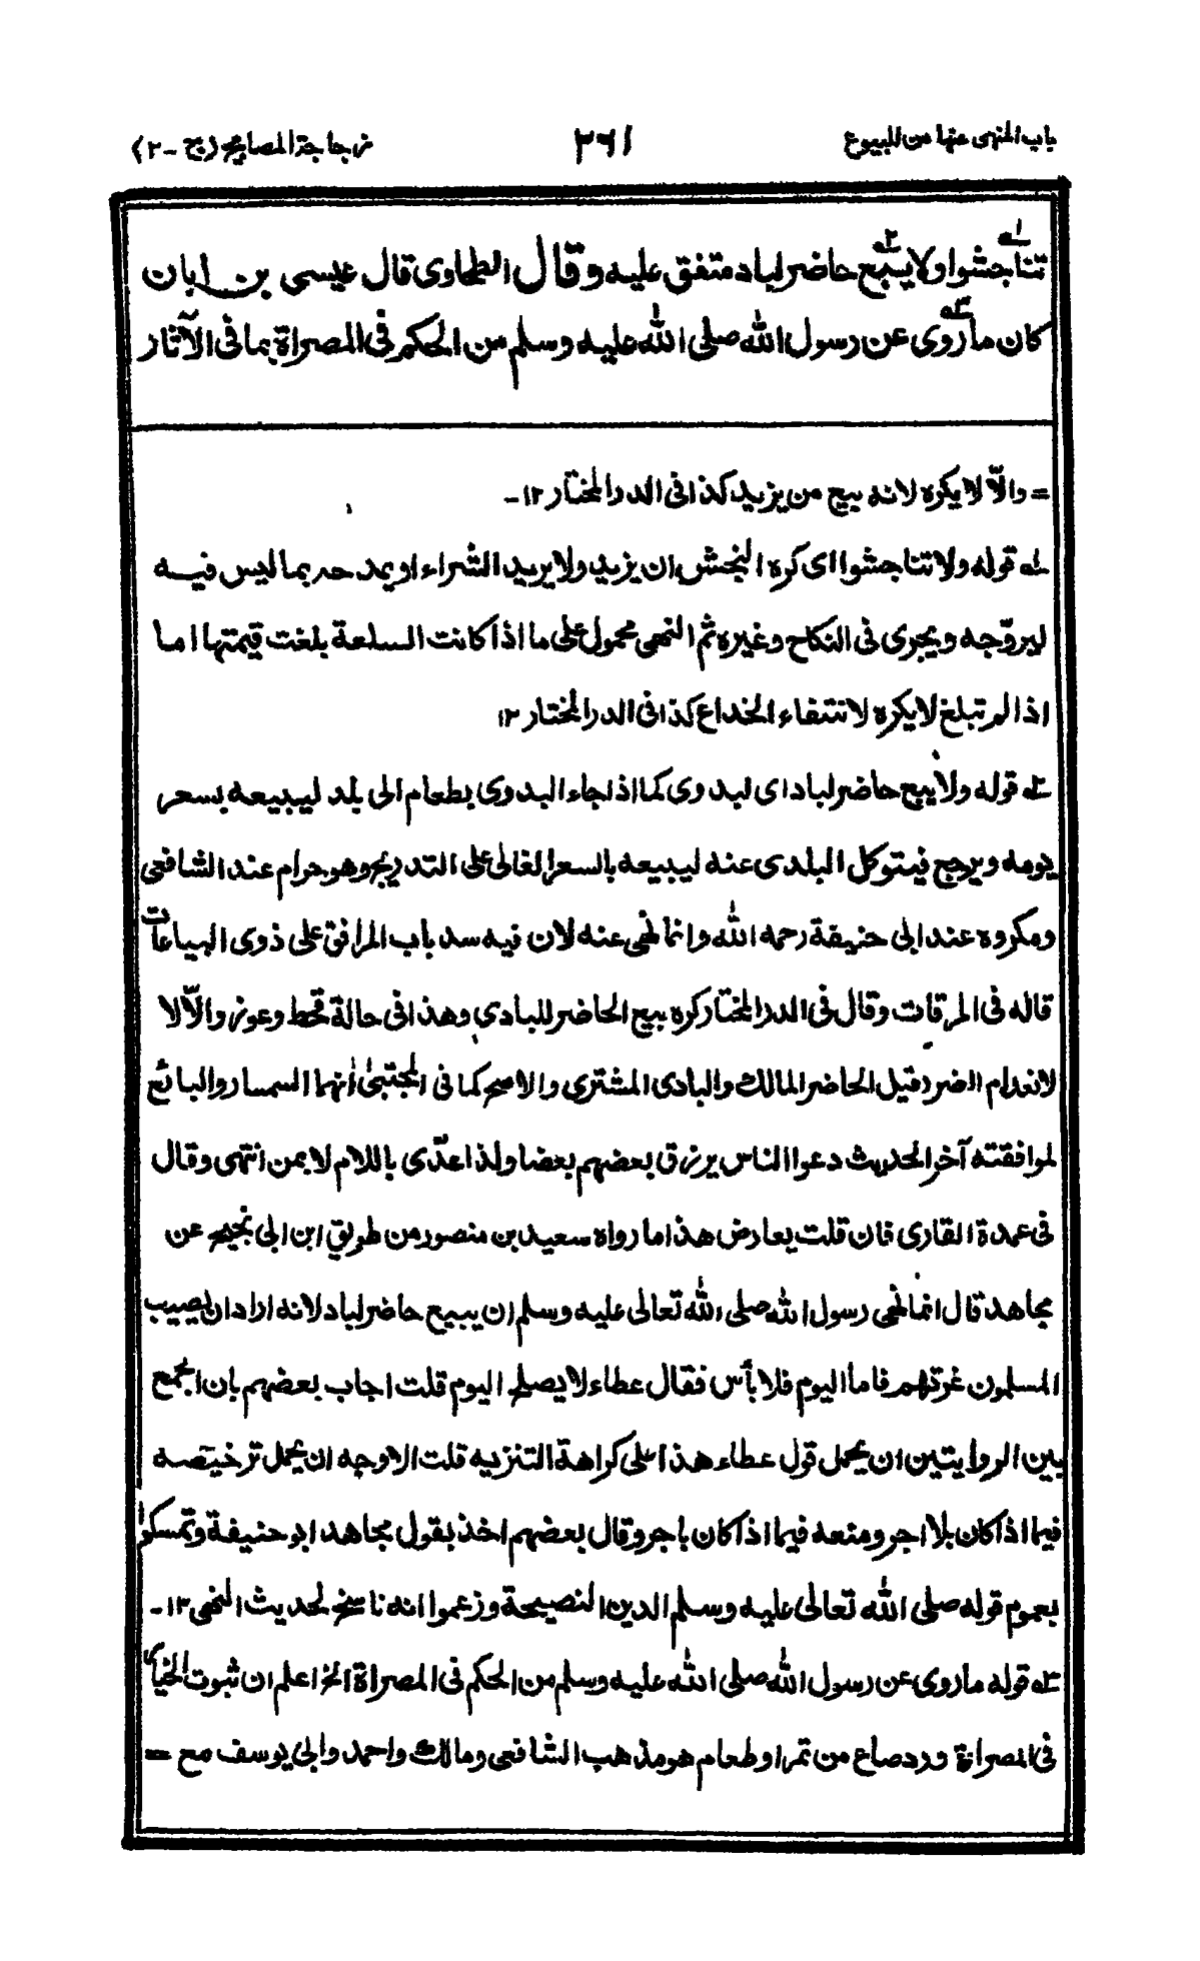 باب المنهى عنها من البيوع ٣٦١ زجاجة المصابيح (ج - ٢)
تناجشوا ولا يبع حاضر لباد متفق عليه وقال الطحاوى قال عيسى بن ابان
كان ما روى عن رسول الله صلى الله عليه وسلم من الحكم فى المصراة بما فى الآثار
= والّا لا يكره لانه بيع من يزيد كذا فى الدر المختار ١٢ -
١ـه قوله ولا تناجشوا اى كره النجش ان يزيد ولا يريد الشراء او يمدحه بما ليس فيه
ليروّجه ويجرى فى النكاح وغيره ثم النهى محمول على ما اذا كانت السلعة بلغت قيمتها اما
اذا لم تبلغ لا يكره لانتفاء الخداع كذا فى الدر المختار ١٢
٢ـه قوله ولا يبع حاضر لباد اى لبدوى كما اذا جاء البدوى بطعام الى بلد ليبيعه بسعر
يومه ويرجع فيتوكل البلدى عنه ليبيعه بالسعر الغالى على التدريج وهو حرام عند الشافعى
ومكروه عند ابى حنيفة رحمه الله وانما نهى عنه لان فيه سد باب المرافق على ذوى البياعات
قاله فى المرقات وقال فى الدر المختار كره بيع الحاضر للبادى وهذا فى حالة قحط وعوز والّا لا
لانعدام الضرر قيل الحاضر المالك والبادى المشترى والاصح كما فى المجتبىٰ انهما السمسار والبائع
لموافقته آخر الحديث دعوا الناس يرزق بعضهم بعضا ولذا عدّى باللام لا بمن انتهى وقال
فى عمدة القارى فان قلت يعارض هذا ما رواه سعيد بن منصور من طريق ابن ابى نجيح عن
مجاهد قال انما نهى رسول الله صلى الله تعالى عليه وسلم ان يبيع حاضر لباد لانه اراد ان يصيب
المسلمون غرتهم فاما اليوم فلا بأس فقال عطاء لا يصلح اليوم قلت اجاب بعضهم بان الجمع
بين الروايتين ان يحمل قول عطاء هذا على كراهة التنزيه قلت الاوجه ان يحمل ترخيصه
فيما اذا كان بلا اجر ومنعه فيما اذا كان باجر وقال بعضهم اخذ بقول مجاهد ابو حنيفة وتمسكوا
بعموم قوله صلى الله تعالى عليه وسلم الدين النصيحة وزعموا انه ناسخ لحديث النهى ١٢ -
٣ـه قوله ما روى عن رسول الله صلى الله عليه وسلم من الحكم فى المصراة الخ اعلم ان ثبوت الخيار
فى المصراة ورد صاع من تمر او طعام هو مذهب الشافعى ومالك واحمد وابى يوسف مع =